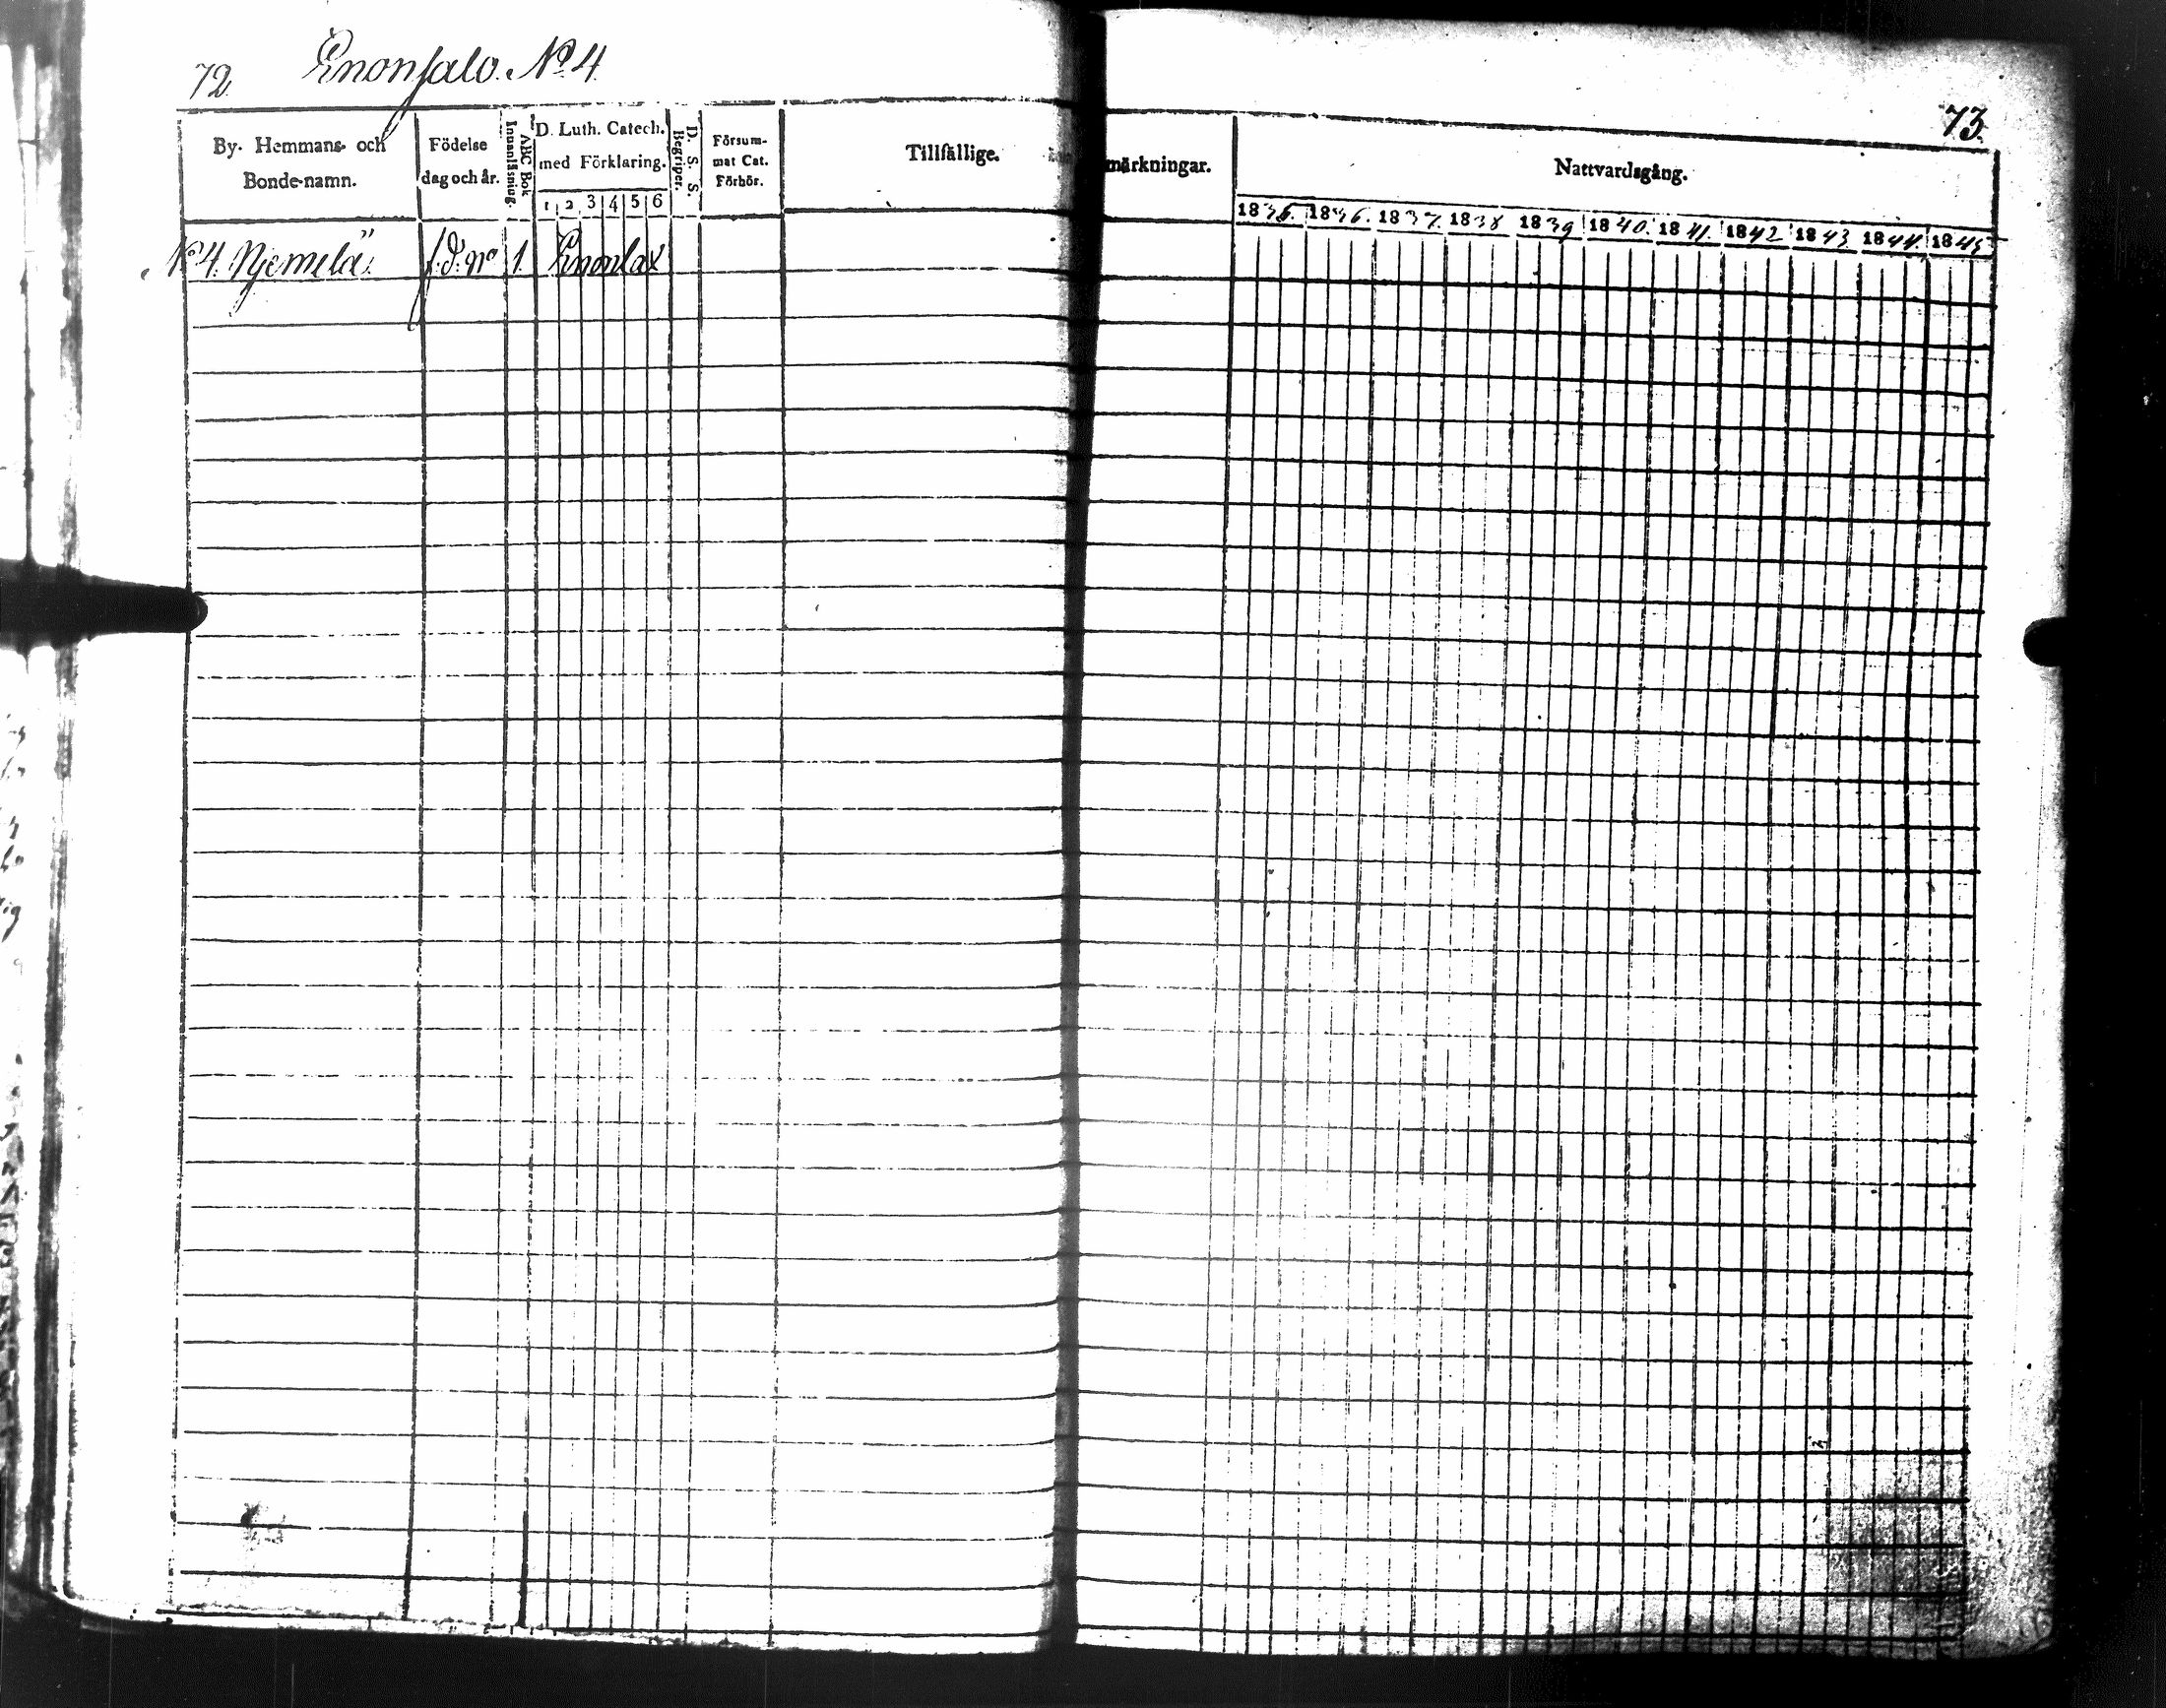 72 Enonsalo. No 4.
73.
By- Hemmans- och Bonde-namn.
Födelse dag och år.
ABC Bok Innanläsning.
D. Luth. Catech. med Förklaring.
1 2 3 4 5 6
D. S. S. Begriper.
Försum- mat Cat. Förhör.
Tillfällige.
märkningar.
Nattvardsgång.
1835. 1836. 1837. 1838 1839 1840. 1841. 1842 1843 1844. 1845
No 4. Njemelä. f. d. No 1. Enonlax